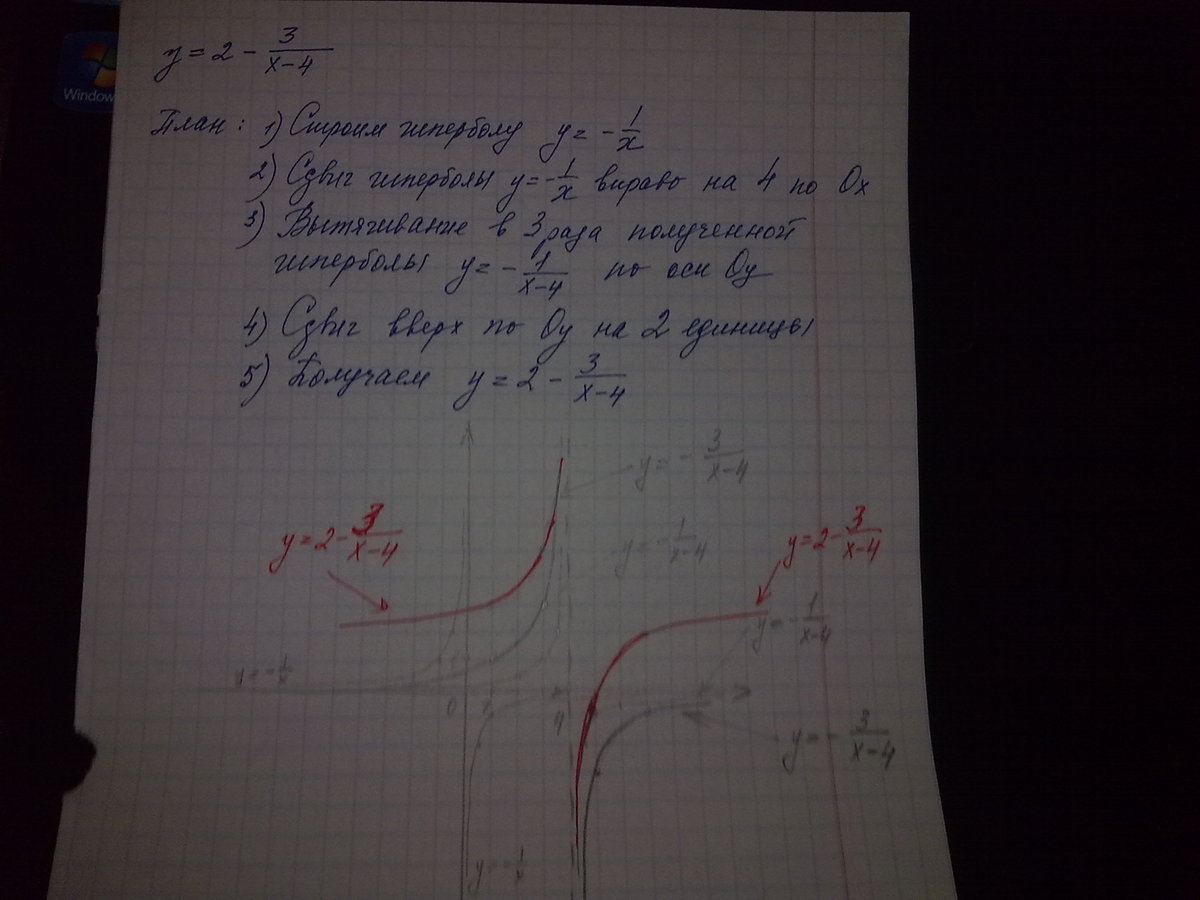 Window
y = 2 - 3/(x-4)
План: 1) Строим гиперболу y = -1/x
2) Сдвиг гиперболы y = -1/x вправо на 4 по Ox
3) Вытягивание в 3 раза полученной
гиперболы y = -1/(x-4) по оси Oy
4) Сдвиг вверх по Oy на 2 единицы
5) Получаем y = 2 - 3/(x-4)
y = -3/(x-4)
y = 2 - 3/(x-4)
y = -1/(x-4)
y = 2 - 3/(x-4)
y = -1/(x-4)
y = -1/x
0
4
y = -3/(x-4)
y = -1/x